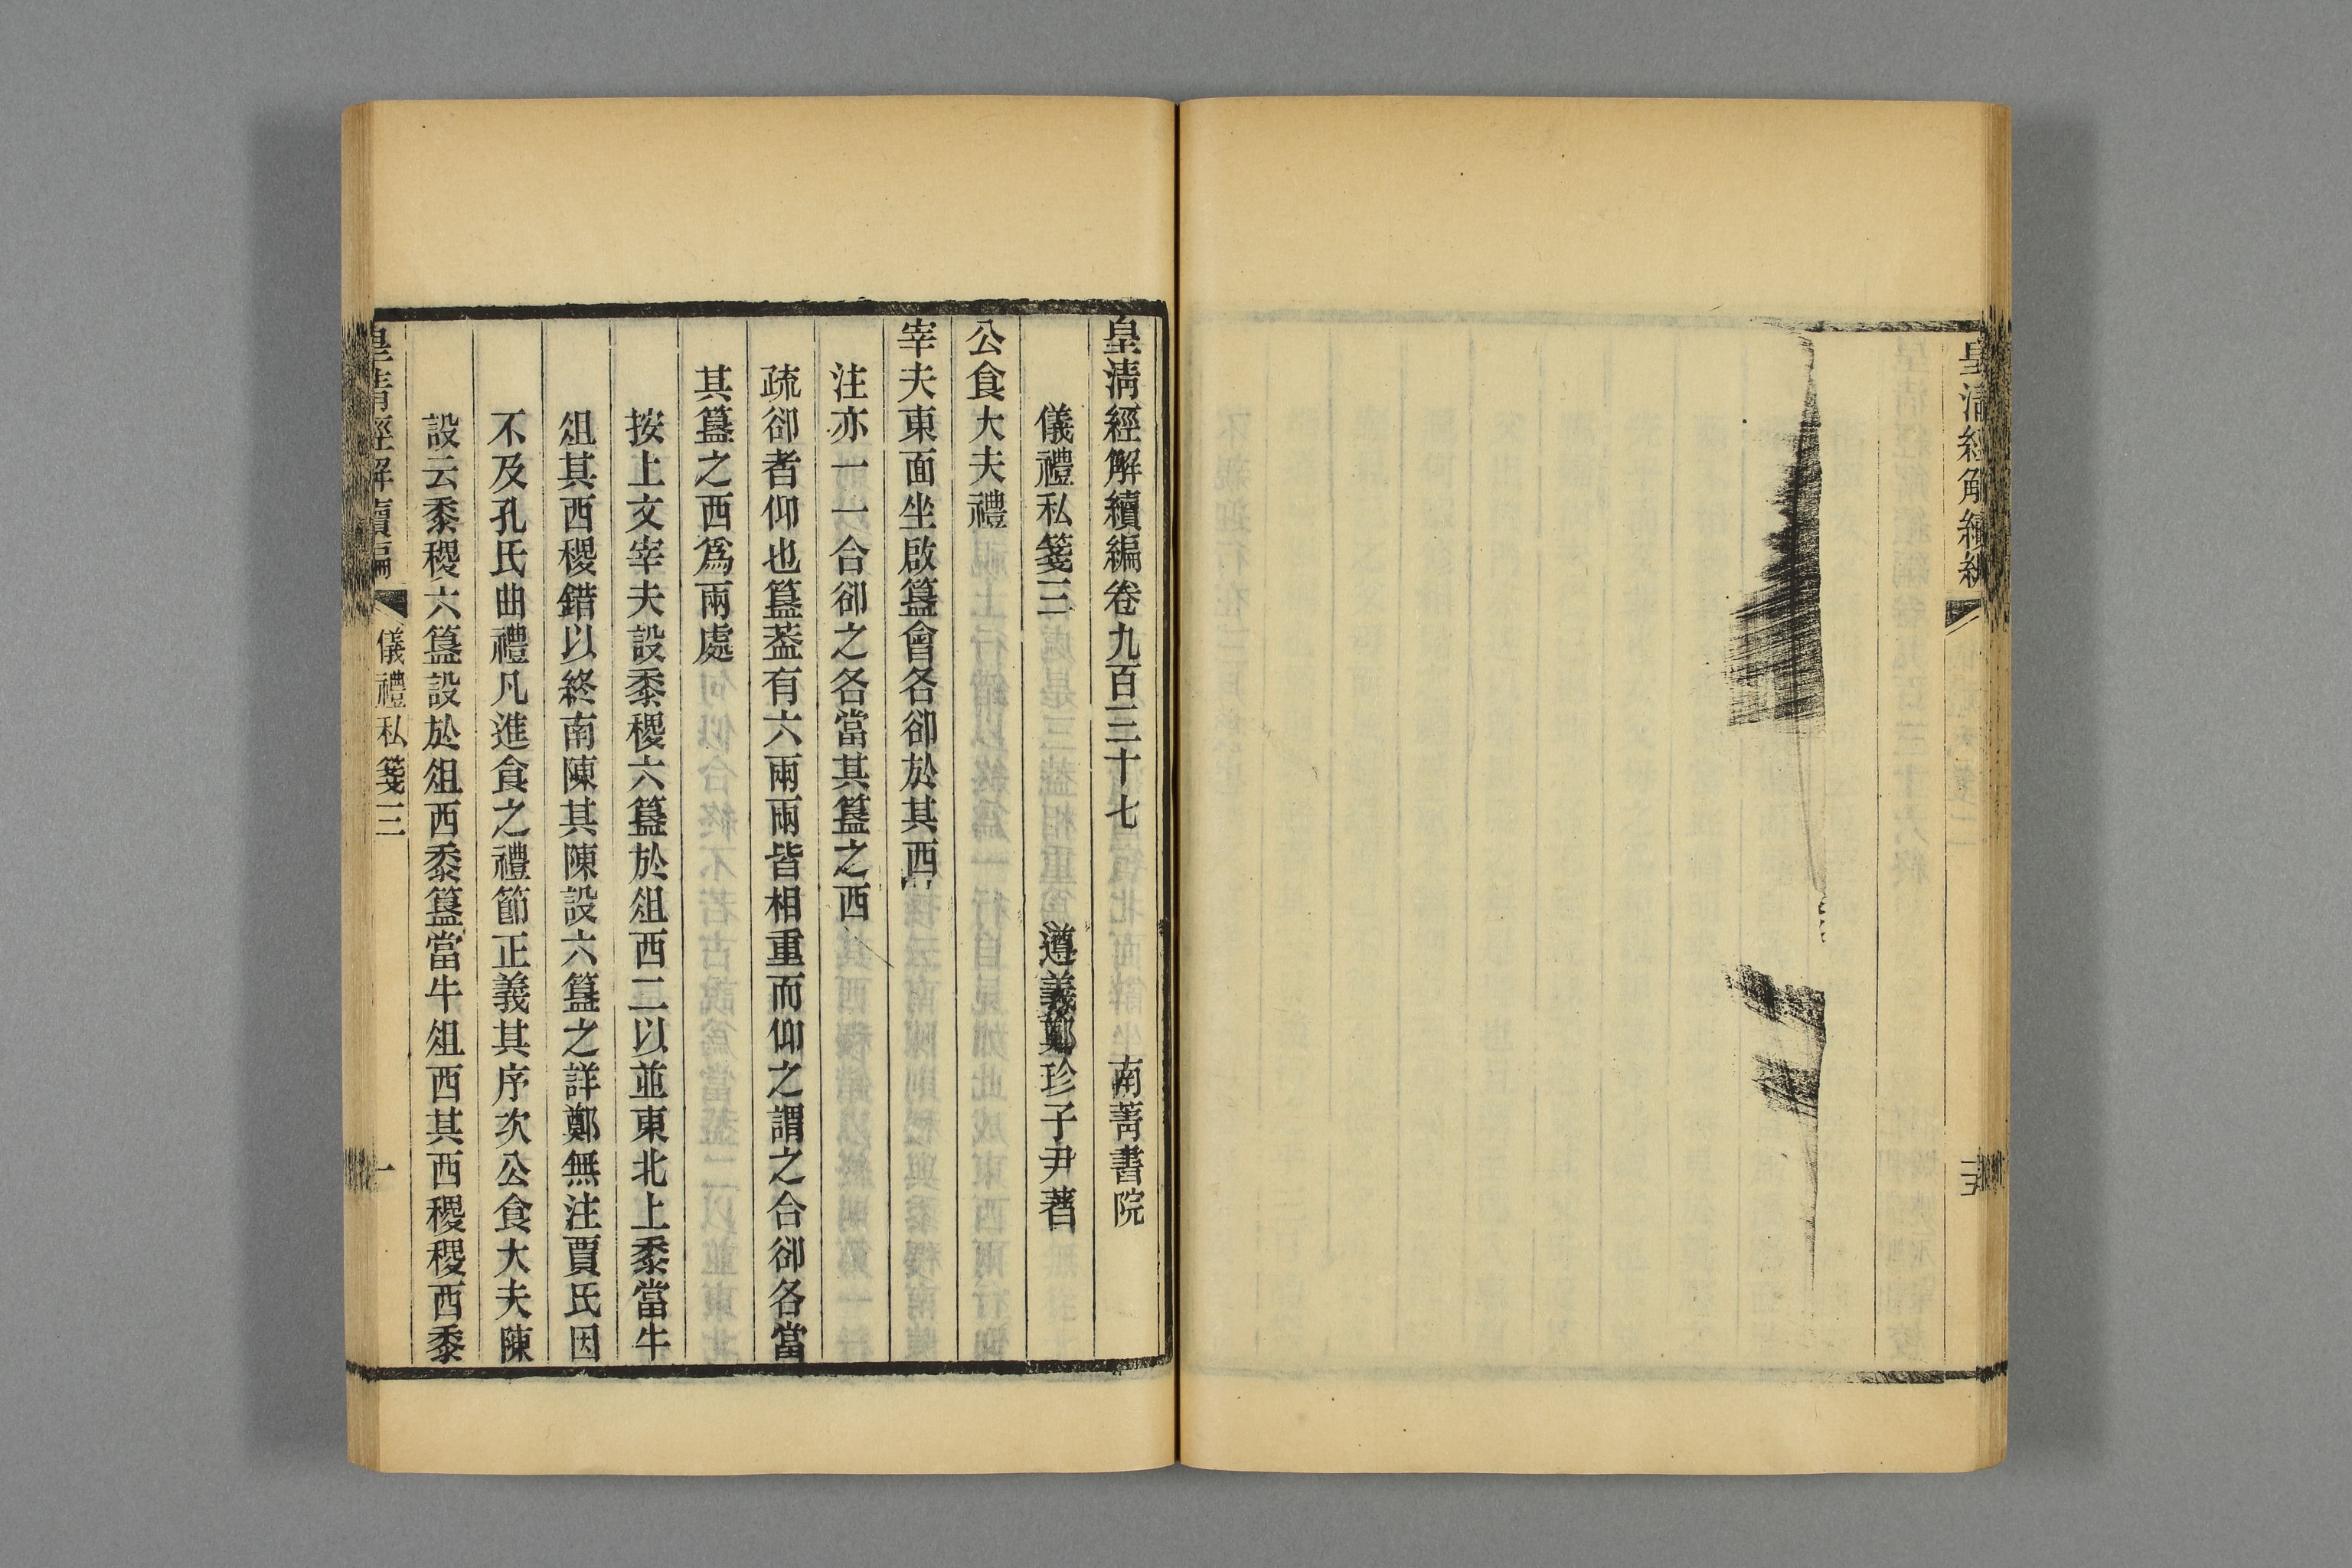 皇清經解續編
皇清經解續編卷九百三十七 南菁書院
儀禮私箋三 遵義鄭珍子尹著
公食大夫禮
宰夫東面坐啟簋會各卻於其西
注亦一一合卻之各當其簋之西
疏卻者仰也簋葢有六兩兩皆相重而仰之謂之合卻各當
其簋之西爲兩處
按上文宰夫設黍稷六簋於俎西二以並東北上黍當牛
俎其西稷錯以終南陳其陳設六簋之詳鄭無注賈氏因
不及孔氏曲禮凡進食之禮節正義其序次公食大夫陳
設云黍稷六簋設於俎西黍簋當牛俎西其西稷稷西黍
皇清經解續編 儀禮私箋三 一